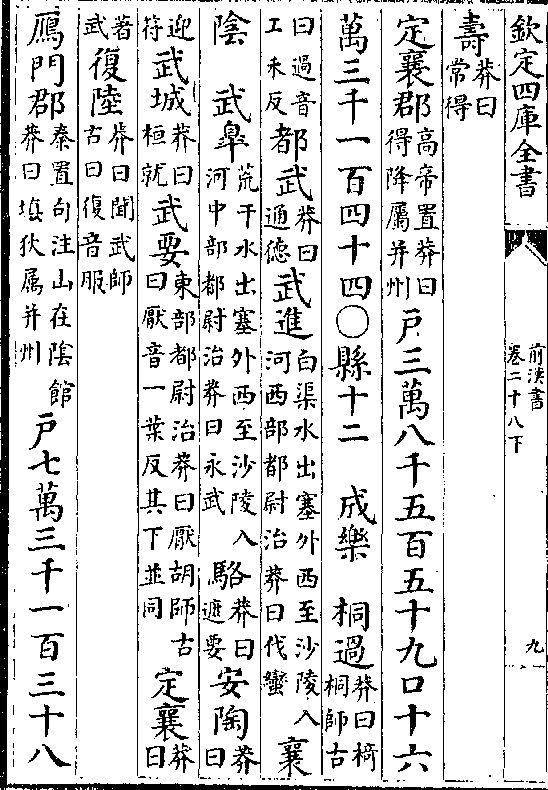 欽定四庫全書 前漢書 卷二十八下 九
壽莽曰常得
定襄郡高帝置莽曰得降屬并州戶三萬八千五百五十九口十六
萬三千一百四十四○縣十二 成樂 桐過莽曰椅桐師古
曰過音工禾反都武莽曰通德武進白渠水出塞外西至沙陵入河西部都尉治莽曰伐蠻襄
陰 武皐荒干水出塞外西至沙陵入河中部都尉治莽曰永武駱莽曰遮要安陶莽曰
迎符武城莽曰桓就武要東部都尉治莽曰厭胡師古曰厭音一葉反其下並同定襄莽曰
著武復陸莽曰聞武師古曰復音服
鴈門郡秦置句注山在陰館莽曰填狄属并州戶七萬三千一百三十八